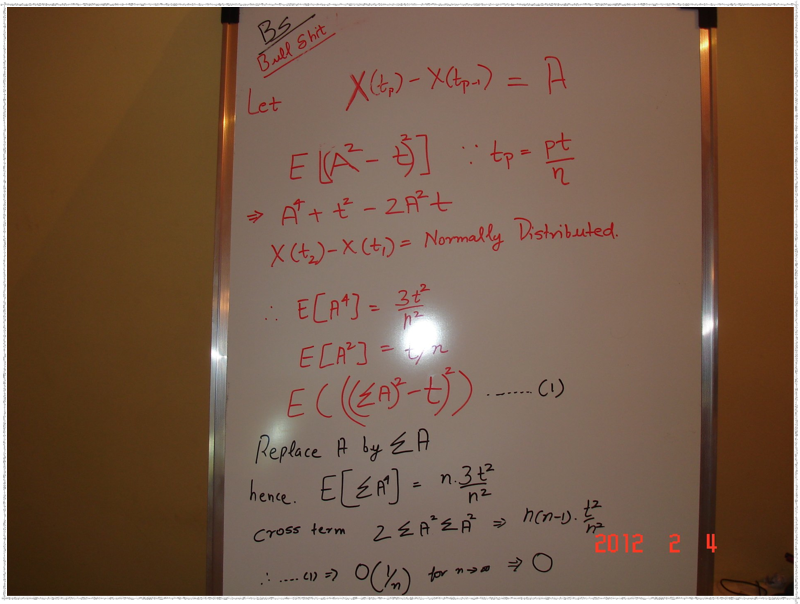 BS
Bull Shit
Let X(t_p) - X(t_{p-1}) = A
E[(A² - t)²] ∵ t_p = pt/n
⇒ A⁴ + t² - 2A²t
X(t₂) - X(t₁) = Normally Distributed.
∴ E[A⁴] = 3t²/n²
E[A²] = t/n
E(((ΣA)² - t)²) ....... (1)
Replace A by ΣA
hence. E[ΣA⁴] = n · 3t²/n²
cross term 2 ΣA² ΣA² ⇒ n(n-1) · t²/n²
∴ .... (1) ⇒ O(1/n) for n→∞ ⇒ O
2012 2 4